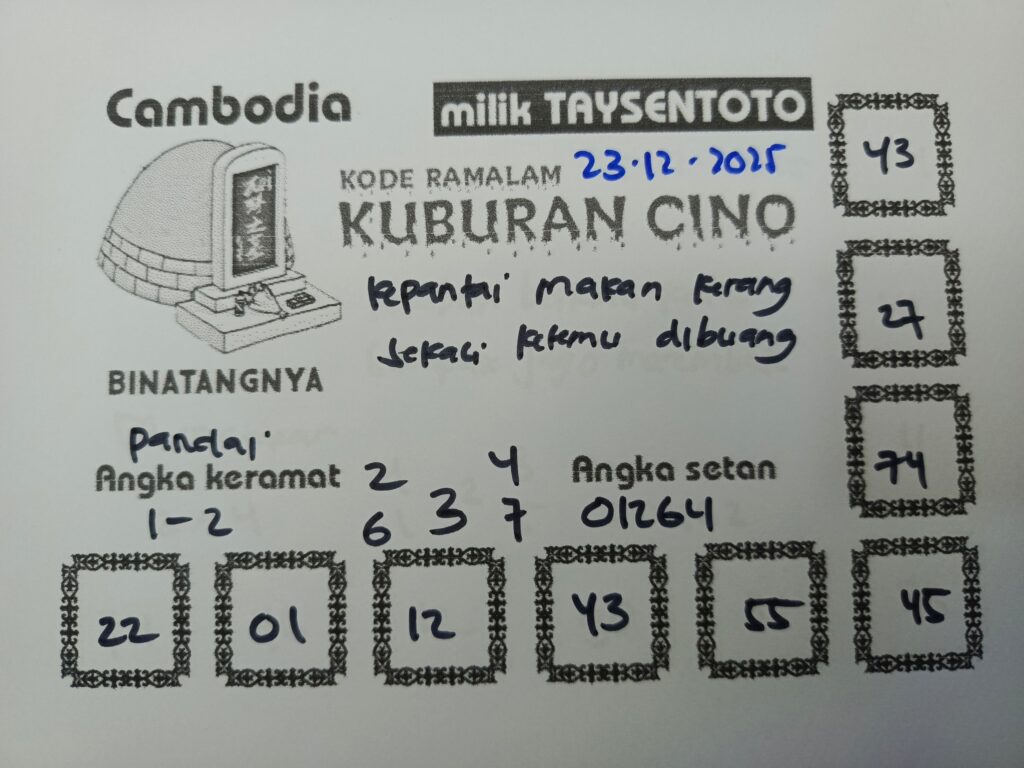 Cambodia
milik TAYSENTOTO
43
KODE RAMALAM 23.12.2025
KUBURAN CINO
27
kepantai makan kerang
sekali ketemu dibuang
BINATANGNYA
pandai
74
Angka keramat
2 4
Angka setan
1-2
6 3 7
01264
22 01 12 43 55 45